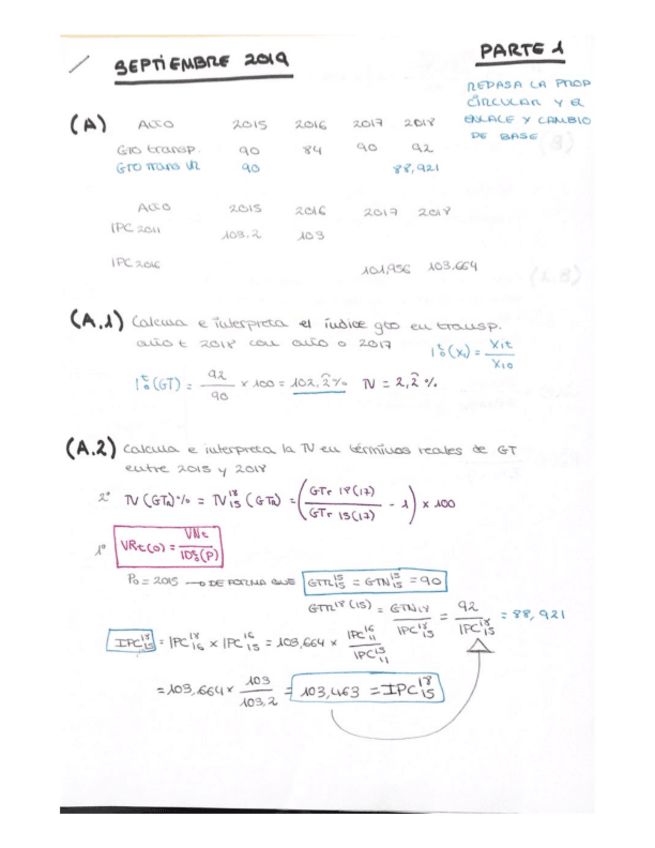 SEPTIEMBRE 2019
PARTE 1
REPASA LA PROP
CIRCULAR Y EL
ENLACE Y CAMBIO
DE BASE
(A) AÑO 2015 2016 2017 2018
GTO transp. 90 84 90 92
GTO trans VR 90 88,921
AÑO 2015 2016 2017 2018
IPC 2011 103.2 103
IPC 2016 101,956 103,664
(A.1) Calcula e interpreta el índice gto en transp.
año t 2018 con año 0 2017 I₀ᵗ(Xᵢ) = Xit / Xio
I₀ᵗ(GT) = 92/90 × 100 = 102,2̂% TV = 2,2̂ %
(A.2) Calcula e interpreta la TV en términos reales de GT
entre 2015 y 2018
2º TV (GTR)% = TV₁₅¹⁸ (GTR) = (GTr 18(17) / GTr 15(17) - 1) × 100
1º VRt(0) = VNt / I₀ᵗ(P)
P₀ = 2015 → DE FORMA QUE GTR₁₅¹⁵ = GTN₁₅¹⁵ = 90
GTR¹⁸(15) = GTN18 / IPC₁₅¹⁸ = 92 / IPC₁₅¹⁸ = 88,921
IPC₁₅¹⁸ = IPC₁₆¹⁸ × IPC₁₅¹⁶ = 103,664 × IPC₁₁¹⁶ / IPC₁₁¹⁵
= 103,664 × 103 / 103,2 = 103,463 = IPC₁₅¹⁸